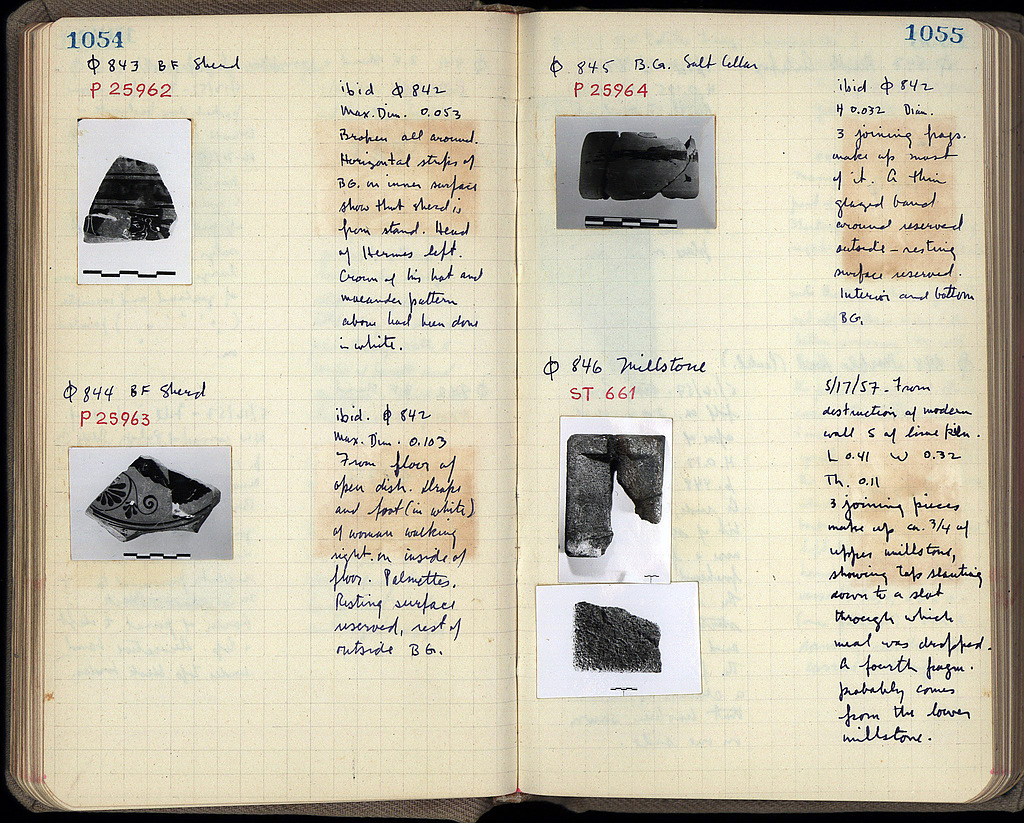 1054
Φ 843 BF Sherd
P 25962
ibid Φ 842
Max. Dim. 0.053
Broken all around.
Horizontal strips of
BG. on inner surface
show that sherd is
from stand. Head
of Hermes left.
Crown of his hat and
maeander pattern
above had been done
in white.
Φ 844 BF Sherd
P 25963
ibid. Φ 842
Max. Dim. 0.103
From floor of
open dish. Drape
and foot (in white)
of woman walking
right. on inside of
floor. Palmettes.
Resting surface
reserved, rest of
outside BG.
1055
Φ 845 B.G. Salt Cellar
P 25964
ibid Φ 842
H 0.032 Diam.
3 joining frags.
make up most
of it. A thin
glazed band
around reserved
outside - resting
surface reserved.
Interior and bottom
BG.
Φ 846 Millstone
ST 661
5/17/57 - From
destruction of modern
wall S of lime kiln.
L 0.41 W 0.32
Th. 0.11
3 joining pieces
make up ca. 3/4 of
upper millstone,
showing top slanting
down to a slot
through which
meal was dropped.
A fourth fragm.
probably comes
from the lower
millstone.